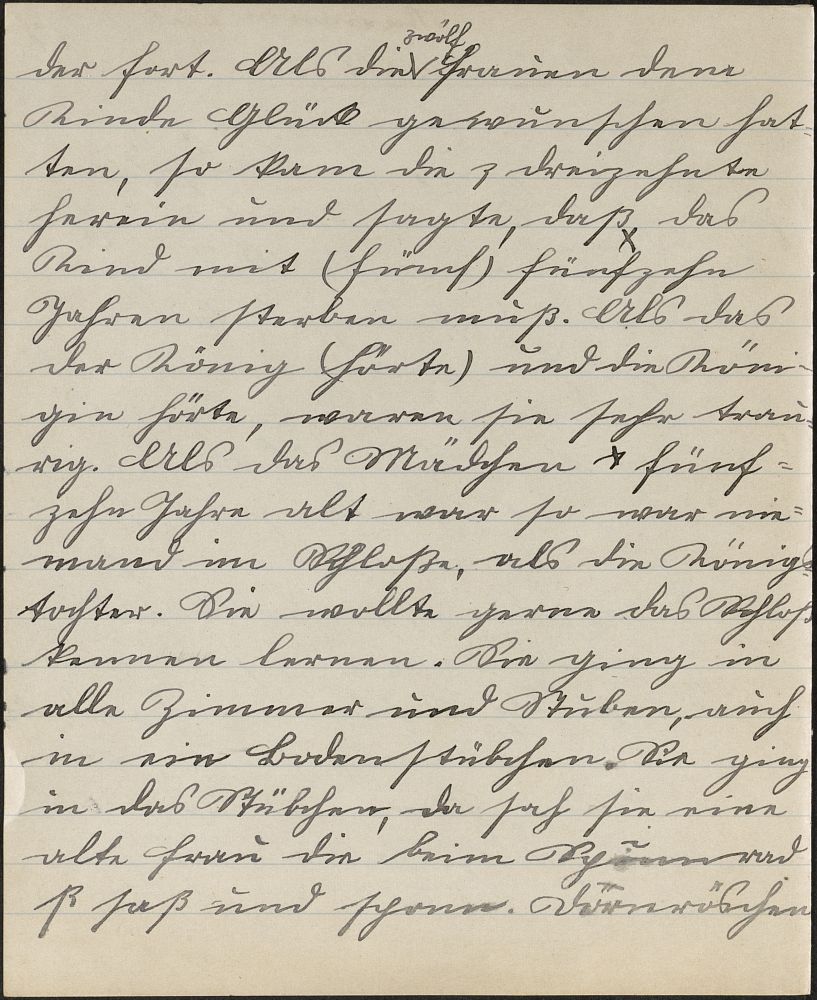 der fort. Als die zwölf Frauen dem
Kinde Glück gewunschen hat-
ten, so kam die z dreizehnte
herein und sagte, daß das
Kind mit (fünf) fünfzehn
Jahren sterben muß. Als das
der König (hörte) und die Köni-
gin hörte, waren sie sehr trau-
rig. Als das Mädchen fünf-
zehn Jahre alt war so war nie-
mand im Schloße, als die Königs
tochter. Sie wollte gerne das Schloß
kennen lernen. Sie ging in
alle Zimmer und Stuben, auch
in ein Bodenstübchen. Sie ging
in das Stübchen, da sah sie eine
alte Frau die beim Spinnrad
ß saß und sponn. Dornröschen